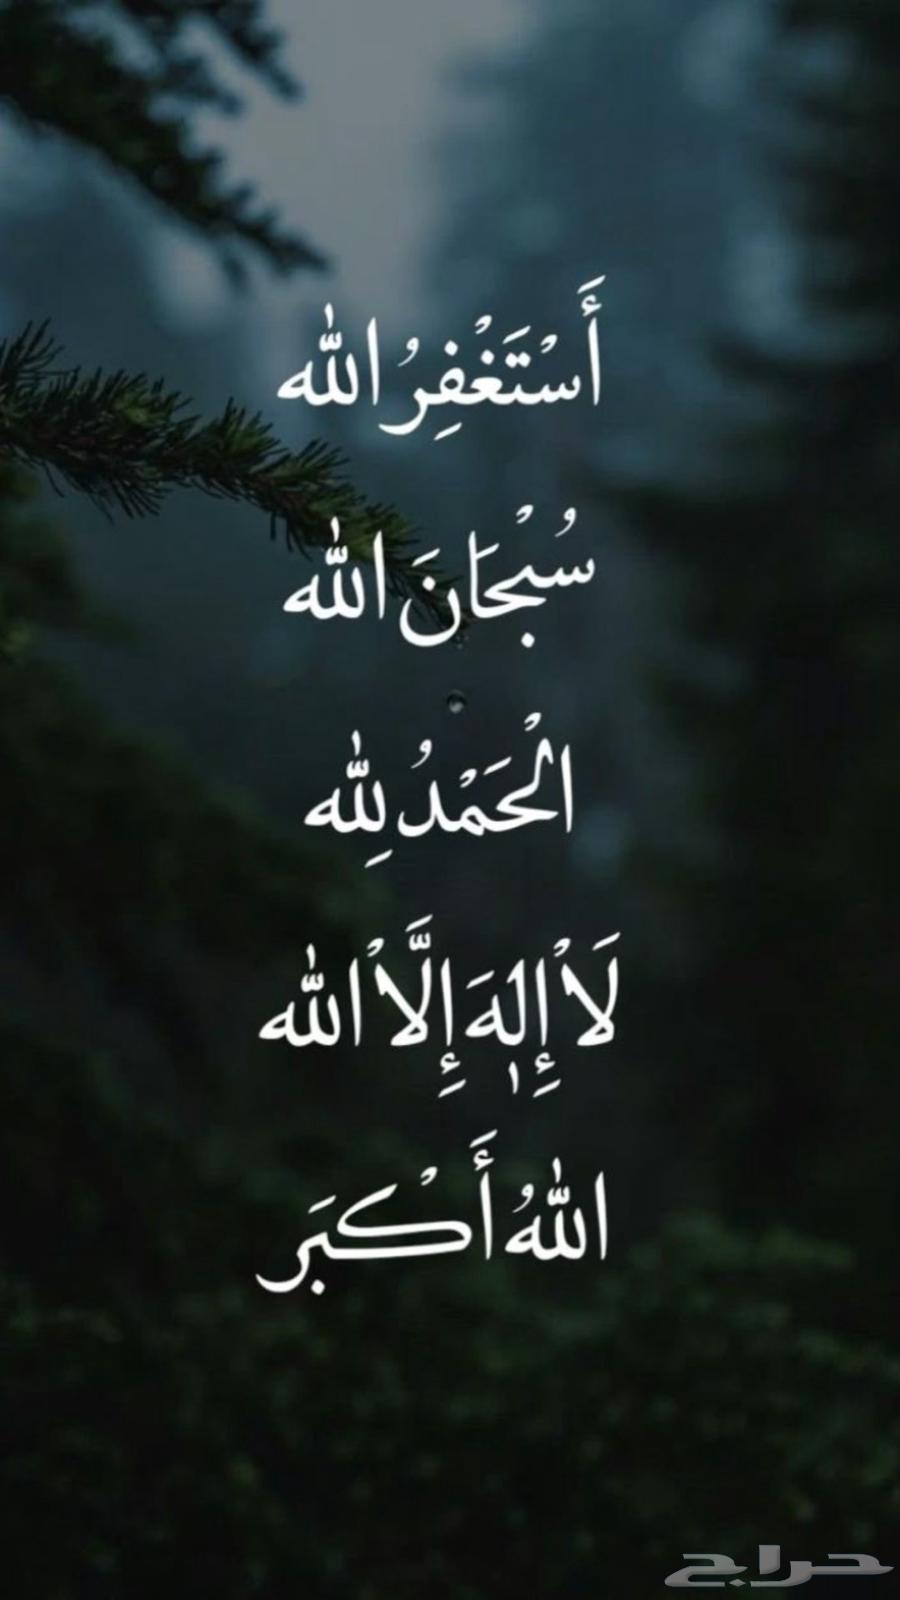 أَسْتَغْفِرُ الله
سُبْحَانَ الله
الْحَمْدُ لِلّٰه
لَاْ إِلٰهَ إِلَّاْ الله
اللهُ أَكْبَر
حراج